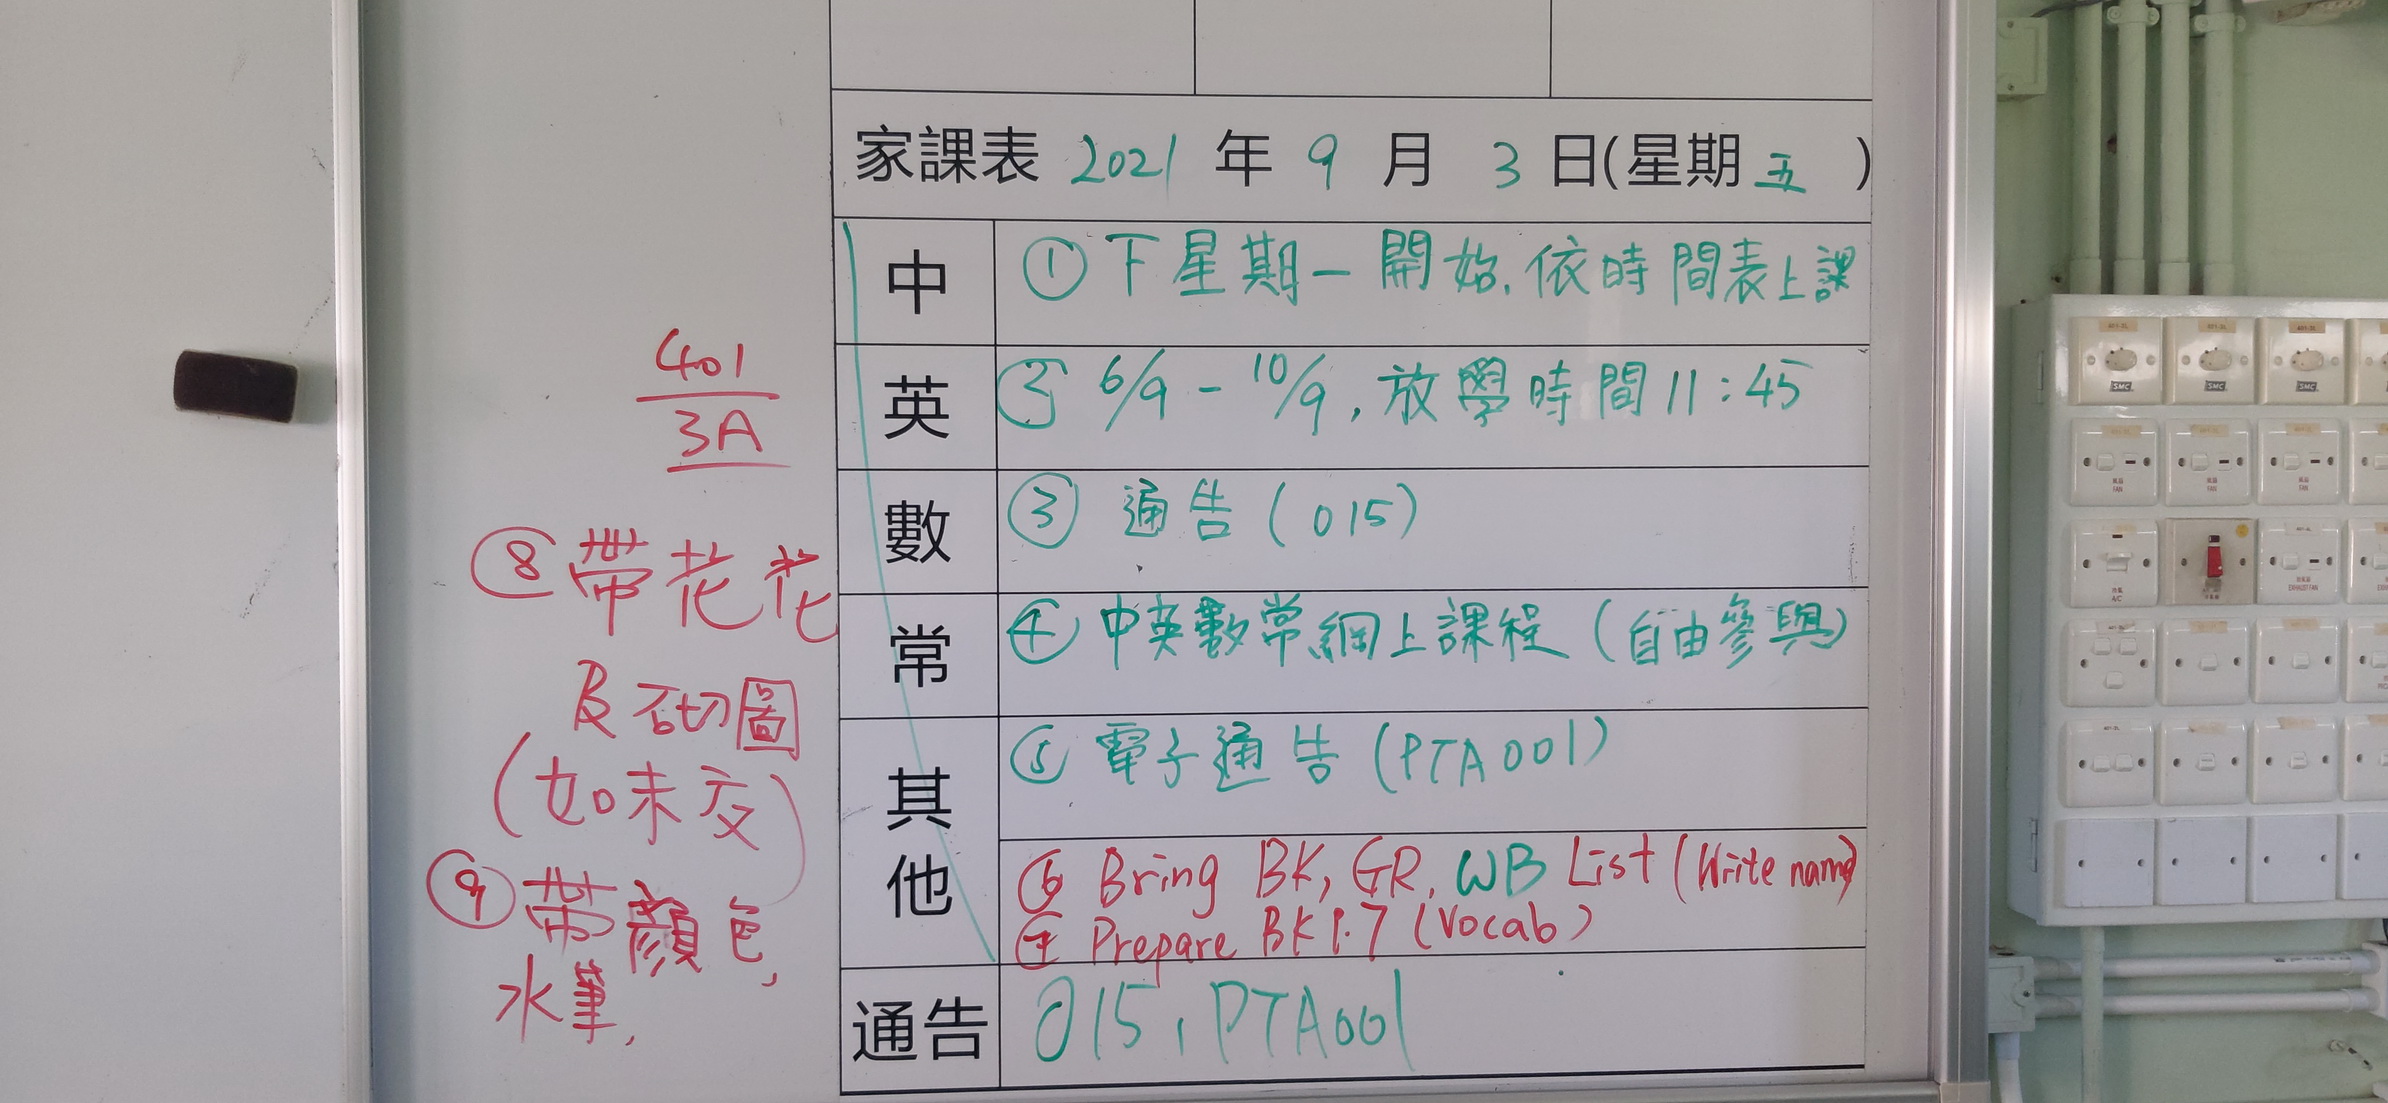 家課表 2021 年 9 月 3 日(星期 五 )
中 ① 下星期一開始, 依時間表上課
英 ② 6/9 - 10/9, 放學時間 11:45
數 ③ 通告 (015)
常 ④ 中英數常網上課程 (自由參與)
其他 ⑤ 電子通告 (PTA001)
⑥ Bring BK, GR, WB List (Write name)
⑦ Prepare BK P.7 (Vocab)
通告 015, PTA001
401
3A
⑧ 帶花花
及砌圖
(如未交)
⑨ 帶顏色,
水筆,
SMC
SMC
SMC
風扇
FAN
風扇
FAN
風扇
FAN
冷氣
A/C
EXHAUST FAN